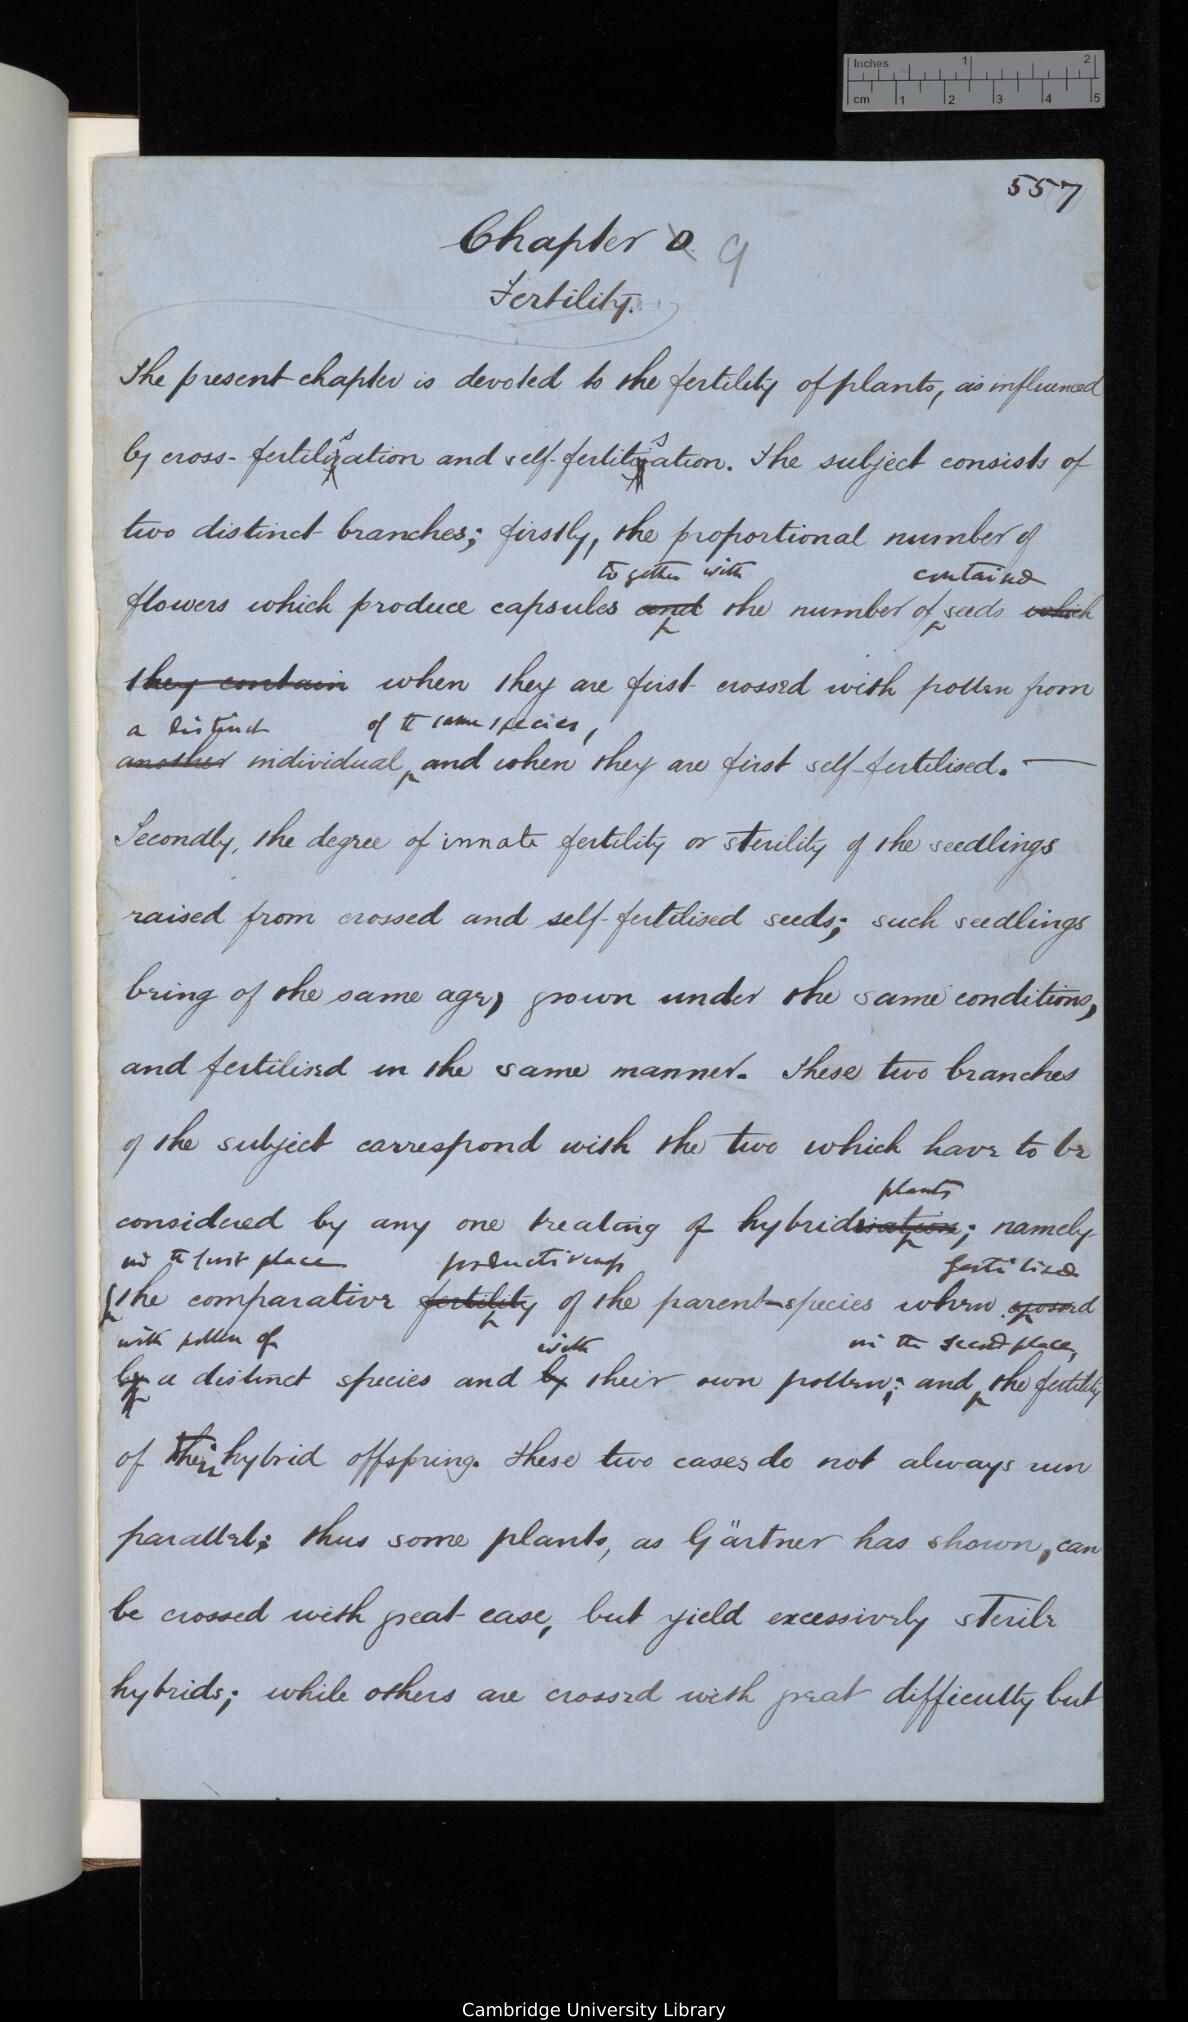 Inches 1 2
cm 1 2 3 4 5
557
Chapter D. 9
Fertility.
The present chapter is devoted to the fertility of plants, as influenced
s s
by cross-fertilization and self-fertilization. The subject consists of
two distinct branches; firstly, the proportional number of
together with contained
flowers which produce capsules and the number of seeds which
they contain when they are first crossed with pollen from
a distinct of the same species,
another individual, and when they are first self-fertilised. —
Secondly, the degree of innate fertility or sterility of the seedlings
raised from crossed and self-fertilised seeds; such seedlings
being of the same age, grown under the same conditions,
and fertilised in the same manner. These two branches
of the subject correspond with the two which have to be
plants
considered by any one treating of hybridisation; namely
in the first place productiveness fertilised
the comparative fertility of the parent-species when crossed
with pollen of with in the second place,
by a distinct species and by their own pollen; and the fertility
of their hybrid offspring. These two cases do not always run
parallel; thus some plants, as Gärtner has shown, can
be crossed with great ease, but yield excessively sterile
hybrids; while others are crossed with great difficulty but
Cambridge University Library